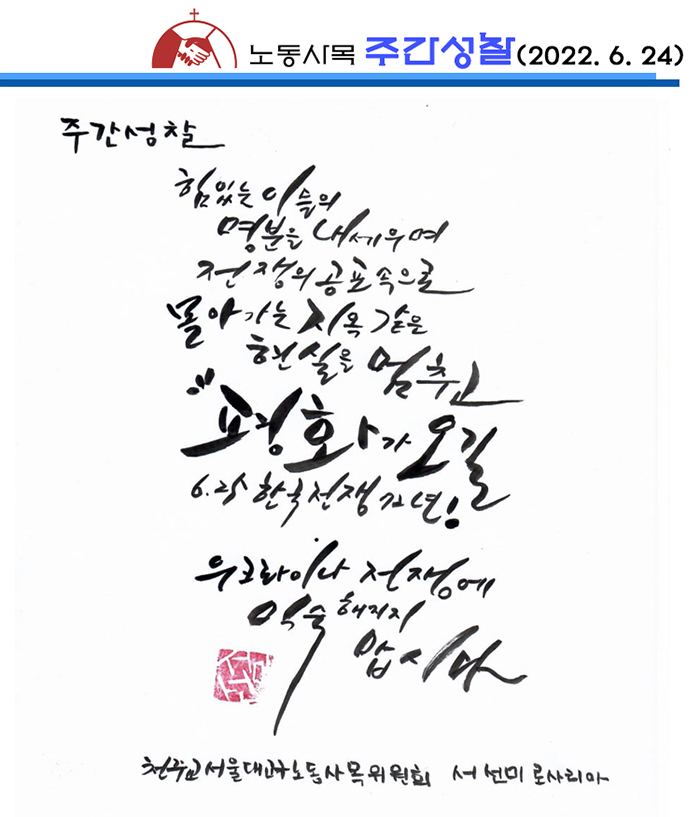 노동사목 주간성찰(2022. 6. 24)
주간성찰
힘있는 이들의
명분을 내세우며
전쟁의 공포속으로
몰아가는 지옥같은
현실을 멈추고
"평화가 오길
6.25 한국전쟁 72년!
우크라이나 전쟁에
익숙해지지
맙시다
천주교서울대교구노동사목위원회 서선미 로사리아